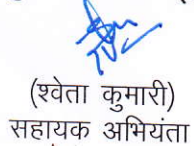 (श्वेता कुमारी)
सहायक अभियंता